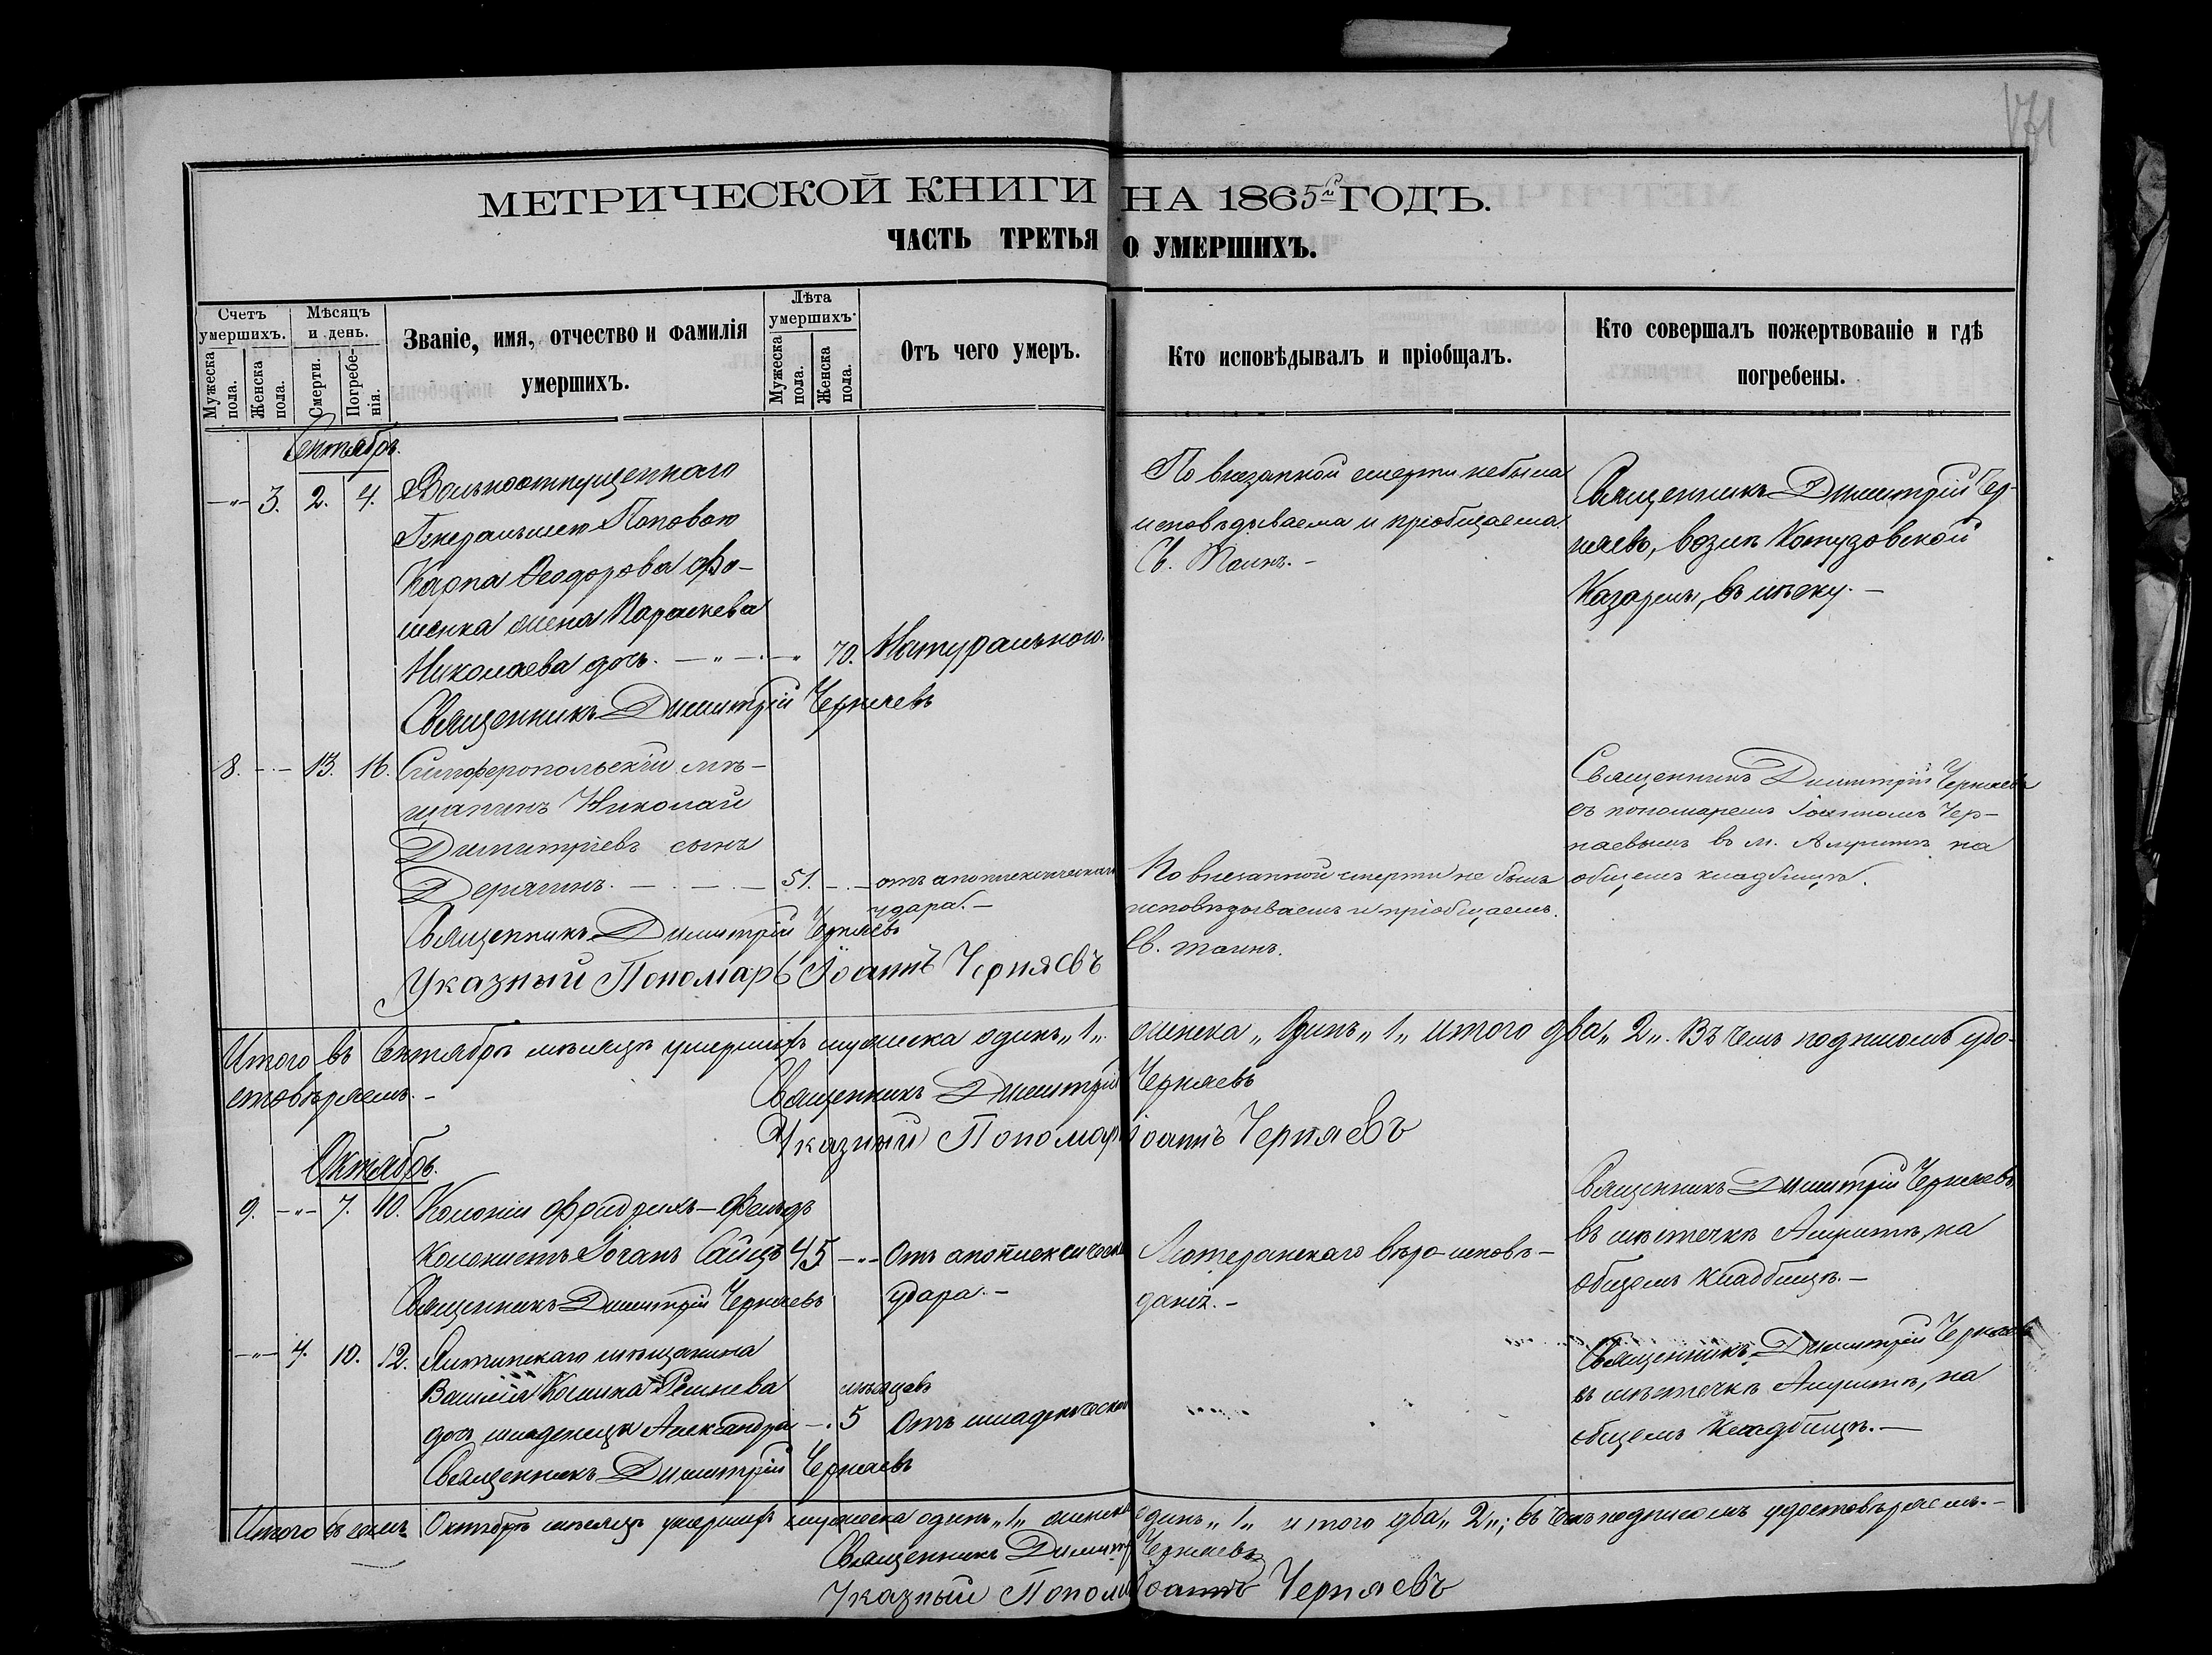 171
МЕТРИЧЕСКОЙ КНИГИ НА 1865й ГОДЪ.
ЧАСТЬ ТРЕТЬЯ О УМЕРШИХЪ.
Счетъ умершихъ.
Мужеска пола.
Женска пола.
Мѣсяцъ и день.
Смерти.
Погребенія.
Званіе, имя, отчество и фамилія
умершихъ.
Лѣта умершихъ.
Мужеска пола.
Женска пола.
Отъ чего умеръ.
Кто исповѣдывалъ и пріобщалъ.
Кто совершалъ пожертвованіе и гдѣ
погребены.
Сентябрь.
-"- 3. 2. 4. Вольноотпущеннаго
Генеральшею Поповою
Карпа Ѳеодорова Фо-
менка жена Параскева
Николаева дочь. - " - . - " 70. Натуральною.
Священникъ Димитрій Черняевъ
По внезапной смерти небыла
исповѣдываема и пріобщаема
Св. Таинъ. -
Священникъ Димитрій Чер-
няевъ, возлѣ
въ лѣску. -
8. - - 13. 16. Симферопольскій мѣ-
щанинъ Николай
Димитріевъ сынъ
Дерягинъ. - . - . - 51. - . - отъ апоплексическаго
удара. -
Священникъ Димитрій Черняевъ
Указный Пономарь Іоаннъ Черняевъ
По внезапной смерти не былъ
исповѣдываемъ и пріобщаемъ
Св. таинъ.
Священникъ Димитрій Черняевъ
съ пономаремъ Іоанномъ Чер-
няевымъ въ м. Алуштѣ на
общемъ кладбищѣ.
Итого въ Сентябрѣ мѣсяцѣ умершихъ мужеска одинъ „1„ женска „Одинъ „1„ итого два „2„. Въ чемъ подписомъ удо-
стовѣряемъ. -
Священникъ Димитрій Черняевъ
Указный Пономарь Іоаннъ Черняевъ
Октябрь.
9. -"- 7. 10. Колоніи Фридрихъ-Фельдъ
Колонистъ Іоганъ Сайцъ 45 -"- Отъ апоплексическаго
удара. -
Священникъ Димитрій Черняевъ
Лютеранскаго вѣро-исповѣ-
данія. -
Священникъ Димитрій Черняевъ
въ мѣстечкѣ Алуштѣ, на
общемъ кладбищѣ. -
-"- 4. 10. 12. Ялтинскаго мѣщанина
Василія Козмина
дочь младенецъ Александра - . 5 мѣсяцевъ Отъ младенческой
Священникъ Димитрій Черняевъ
Священникъ Димитрій Черняевъ
въ мѣстечкѣ Алуштѣ, на
общемъ кладбищѣ. -
Итого въ семъ Октябрѣ мѣсяцѣ умершихъ мужеска одинъ „1„ женска одинъ „1„ итого два „2„; въ чемъ подписомъ удостовѣряемъ. -
Священникъ Димитрій Черняевъ
Указный Пономарь Іоаннъ Черняевъ